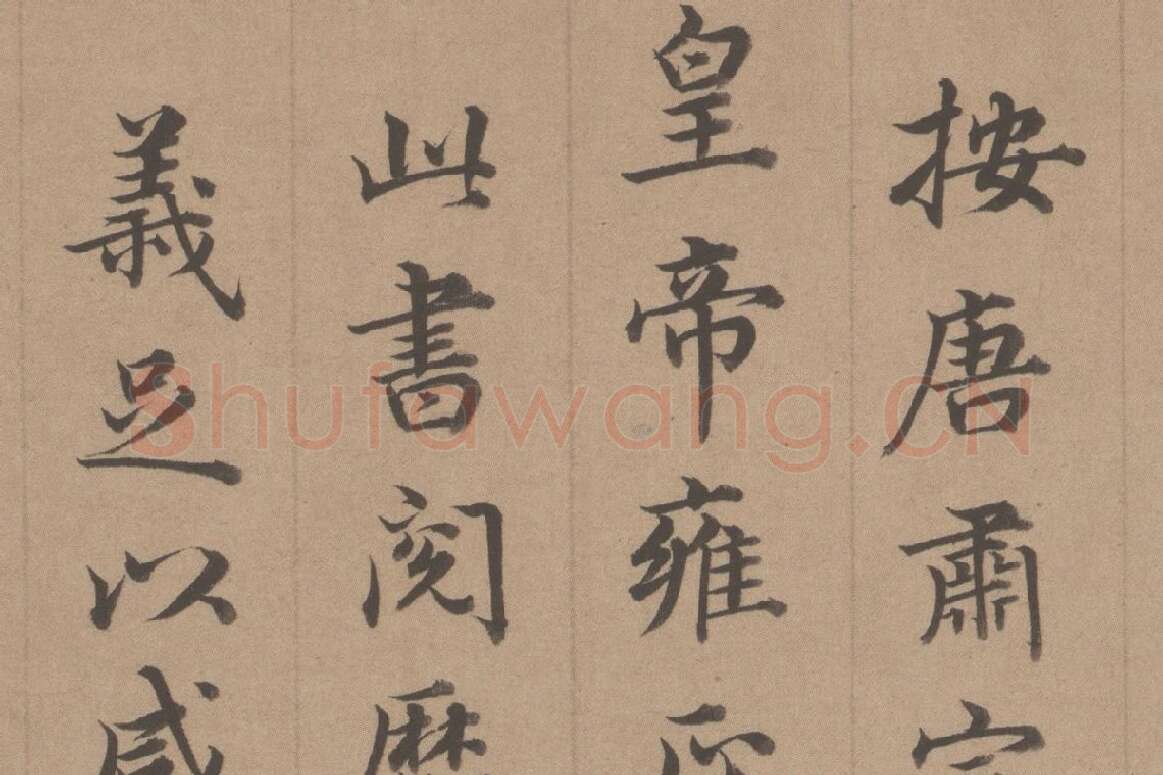 按唐肅宗
皇帝雍正
此書閱歷
義足以感
Shufawang.CN